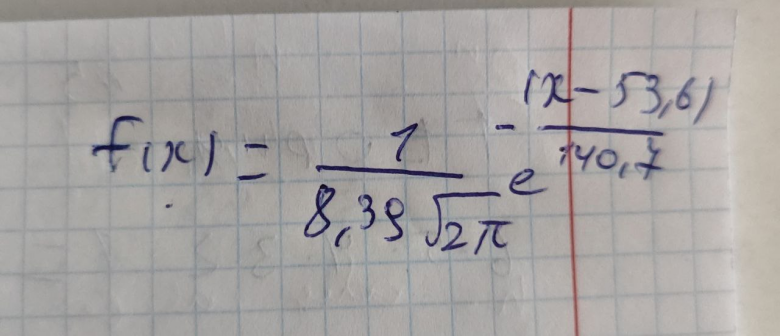 f(x) = 1/(8,39√2π) e^(-(x-53,6)/140,7)